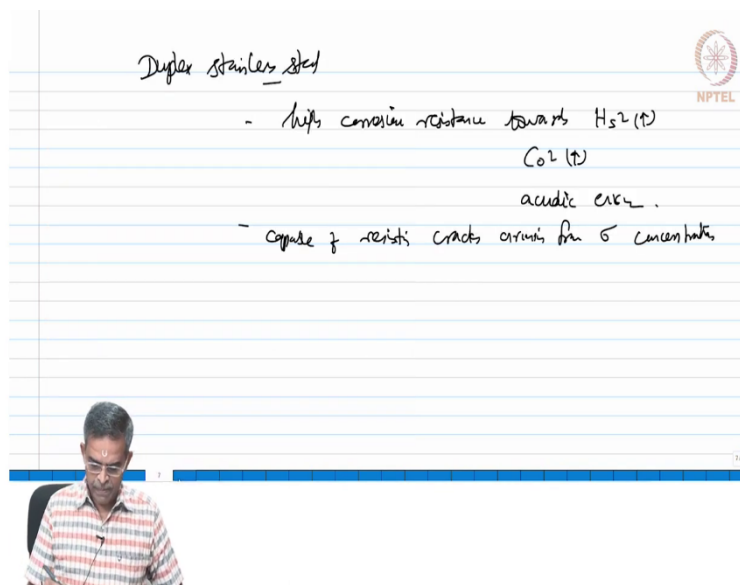 Duplex stainless steel
NPTEL
- high corrosion resistance towards Hs2 (↑)
Co2 (↑)
acidic env.
- capable of resisting cracks arising from σ concentration